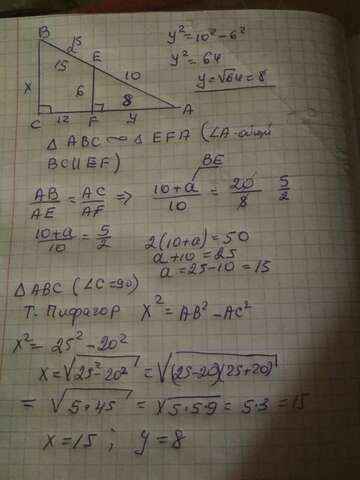 B
25
15
E
10
X
6
8
A
C
12
F
y
y² = 10² - 6²
y² = 64
y = √64 = 8
Δ ABC ∾ Δ EFA (∠A - общий
BC || EF)
BE
AB/AE = AC/AF => (10+a)/10 = 20/8 5/2
(10+a)/10 = 5/2
2(10+a) = 50
a + 10 = 25
a = 25 - 10 = 15
Δ ABC (∠C = 90)
Т. Пифагор X² = AB² - AC²
X² = 25² - 20²
X = √25² - 20² = √(25-20)(25+20)
= √5 · 45 = √5·5·9 = 5·3 = 15
X = 15 ; y = 8